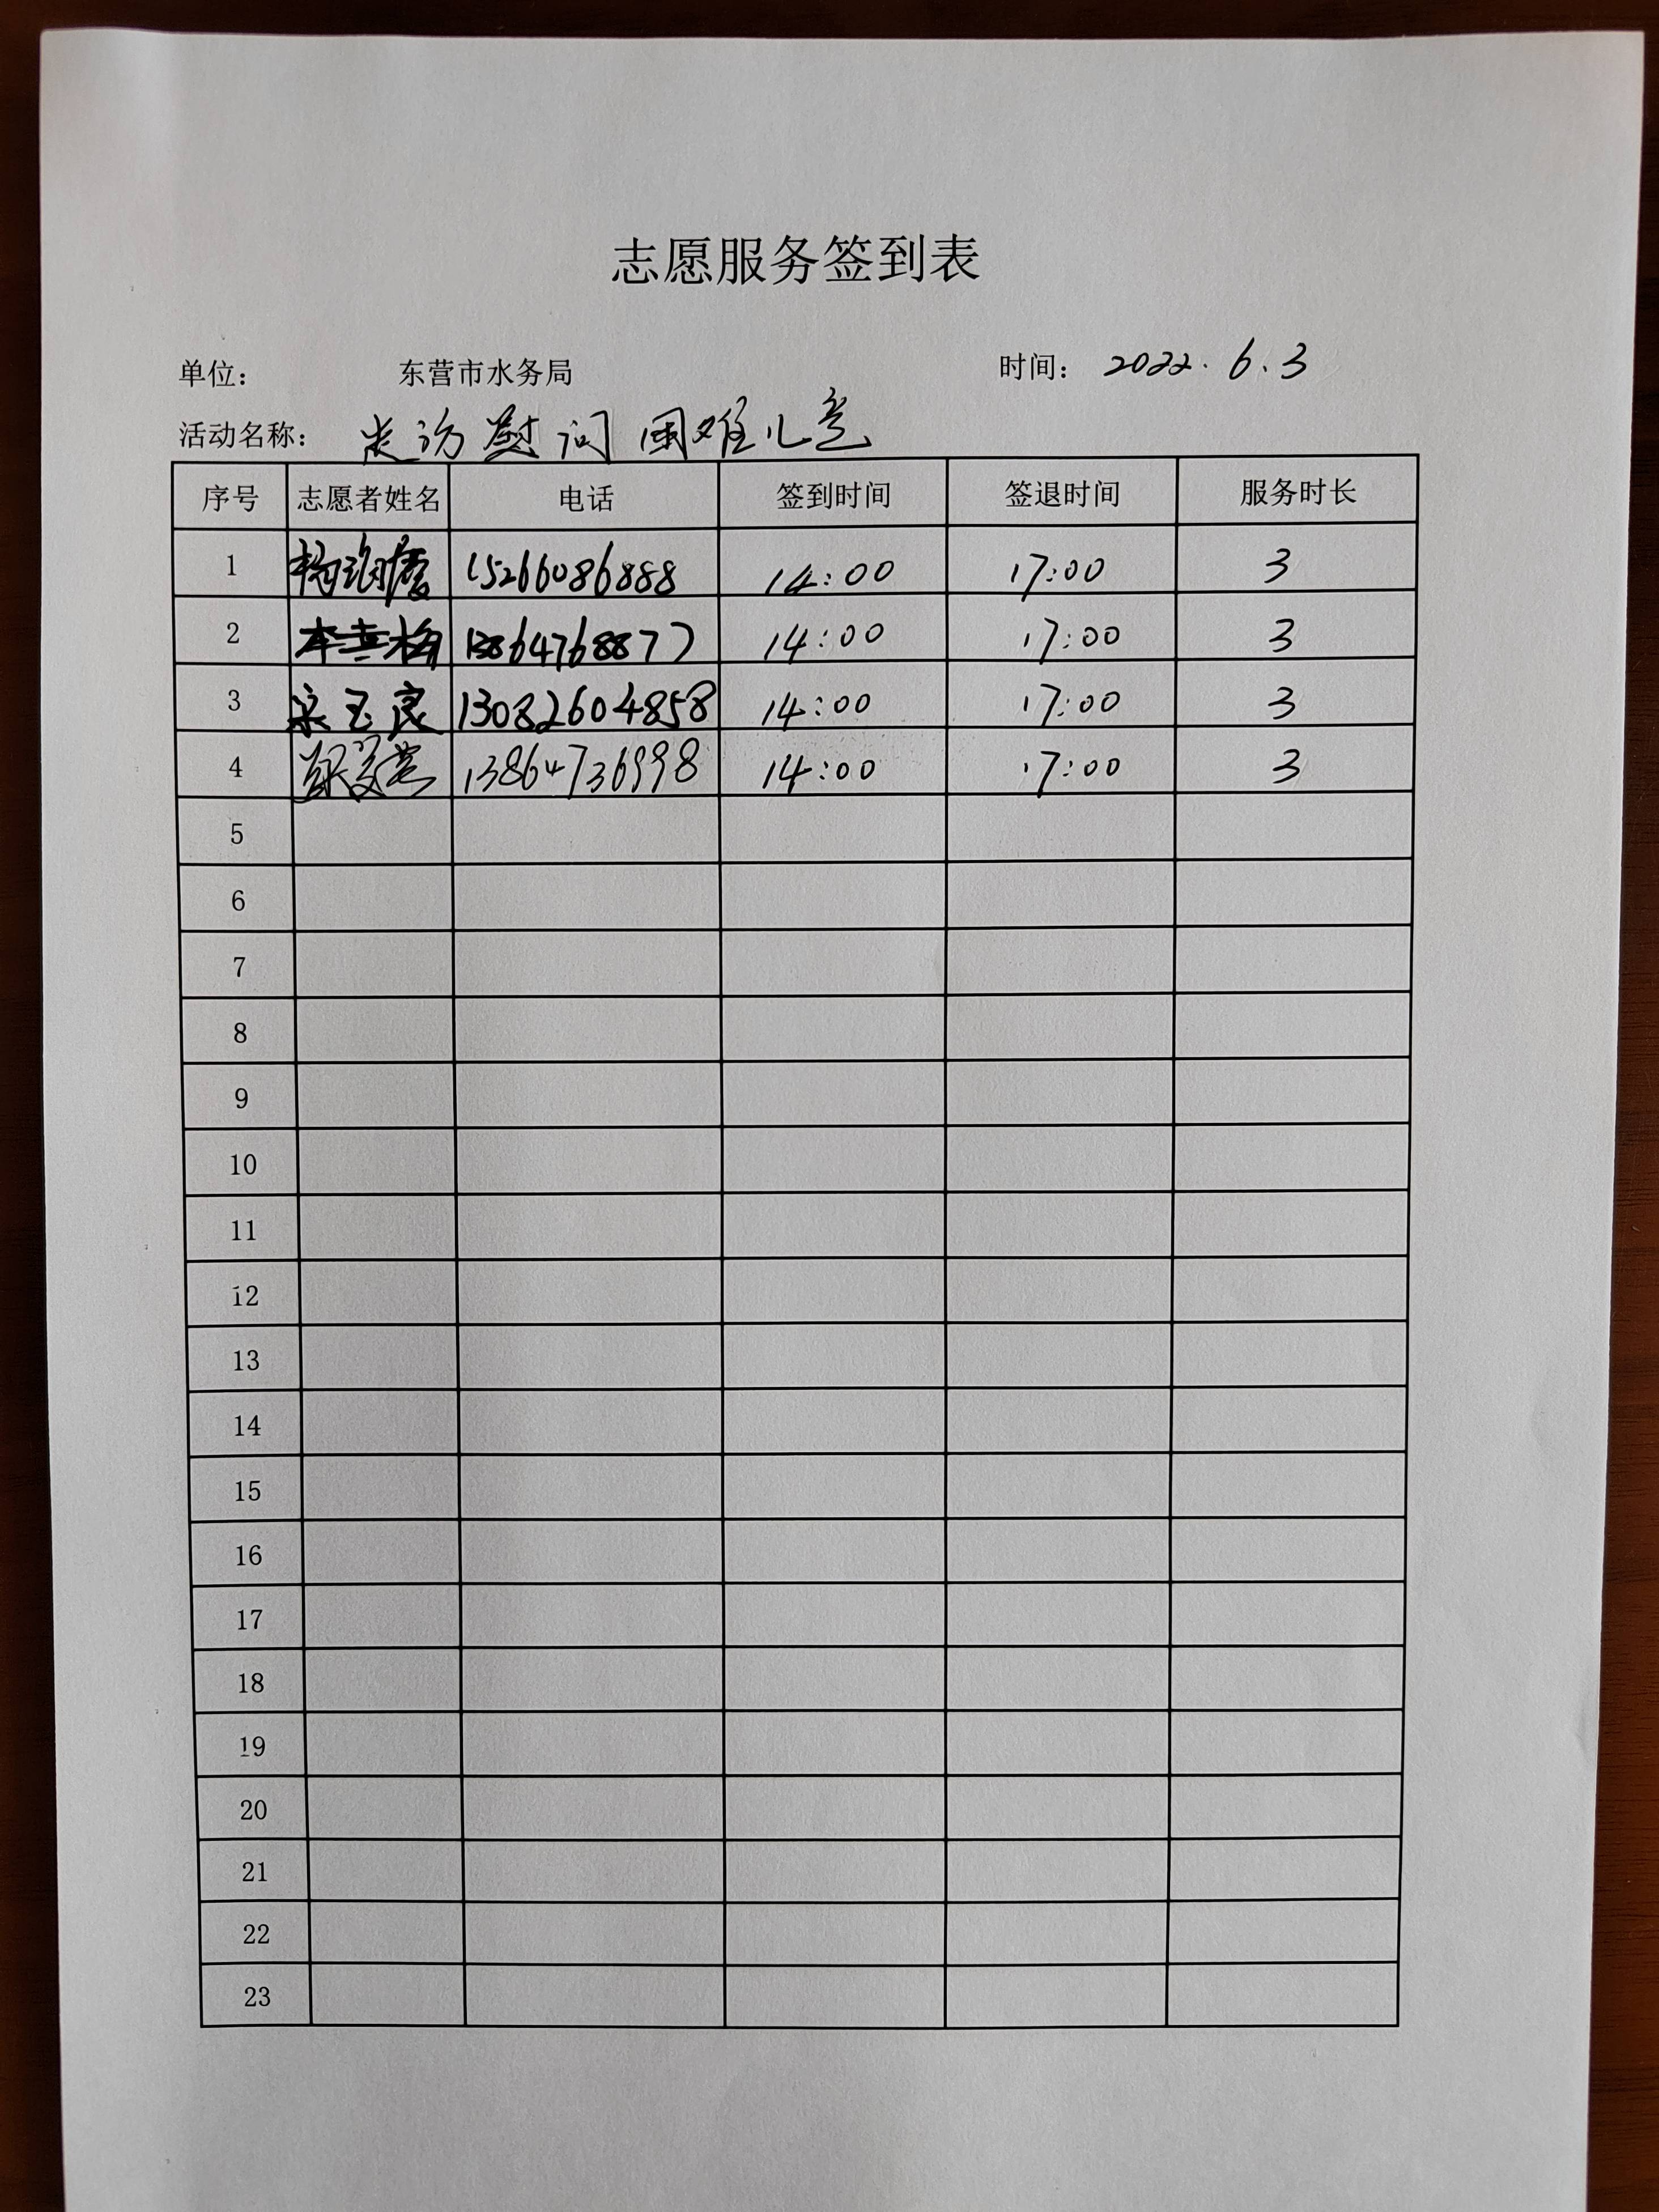 志愿服务签到表
单位： 东营市水务局 时间： 2022.6.3
活动名称： 走访慰问困难儿童
序号 志愿者姓名 电话 签到时间 签退时间 服务时长
1 15266086888 14:00 17:00 3
2 13864768877 14:00 17:00 3
3 宋玉良 13082604858 14:00 17:00 3
4 13864736998 14:00 17:00 3
5
6
7
8
9
10
11
12
13
14
15
16
17
18
19
20
21
22
23